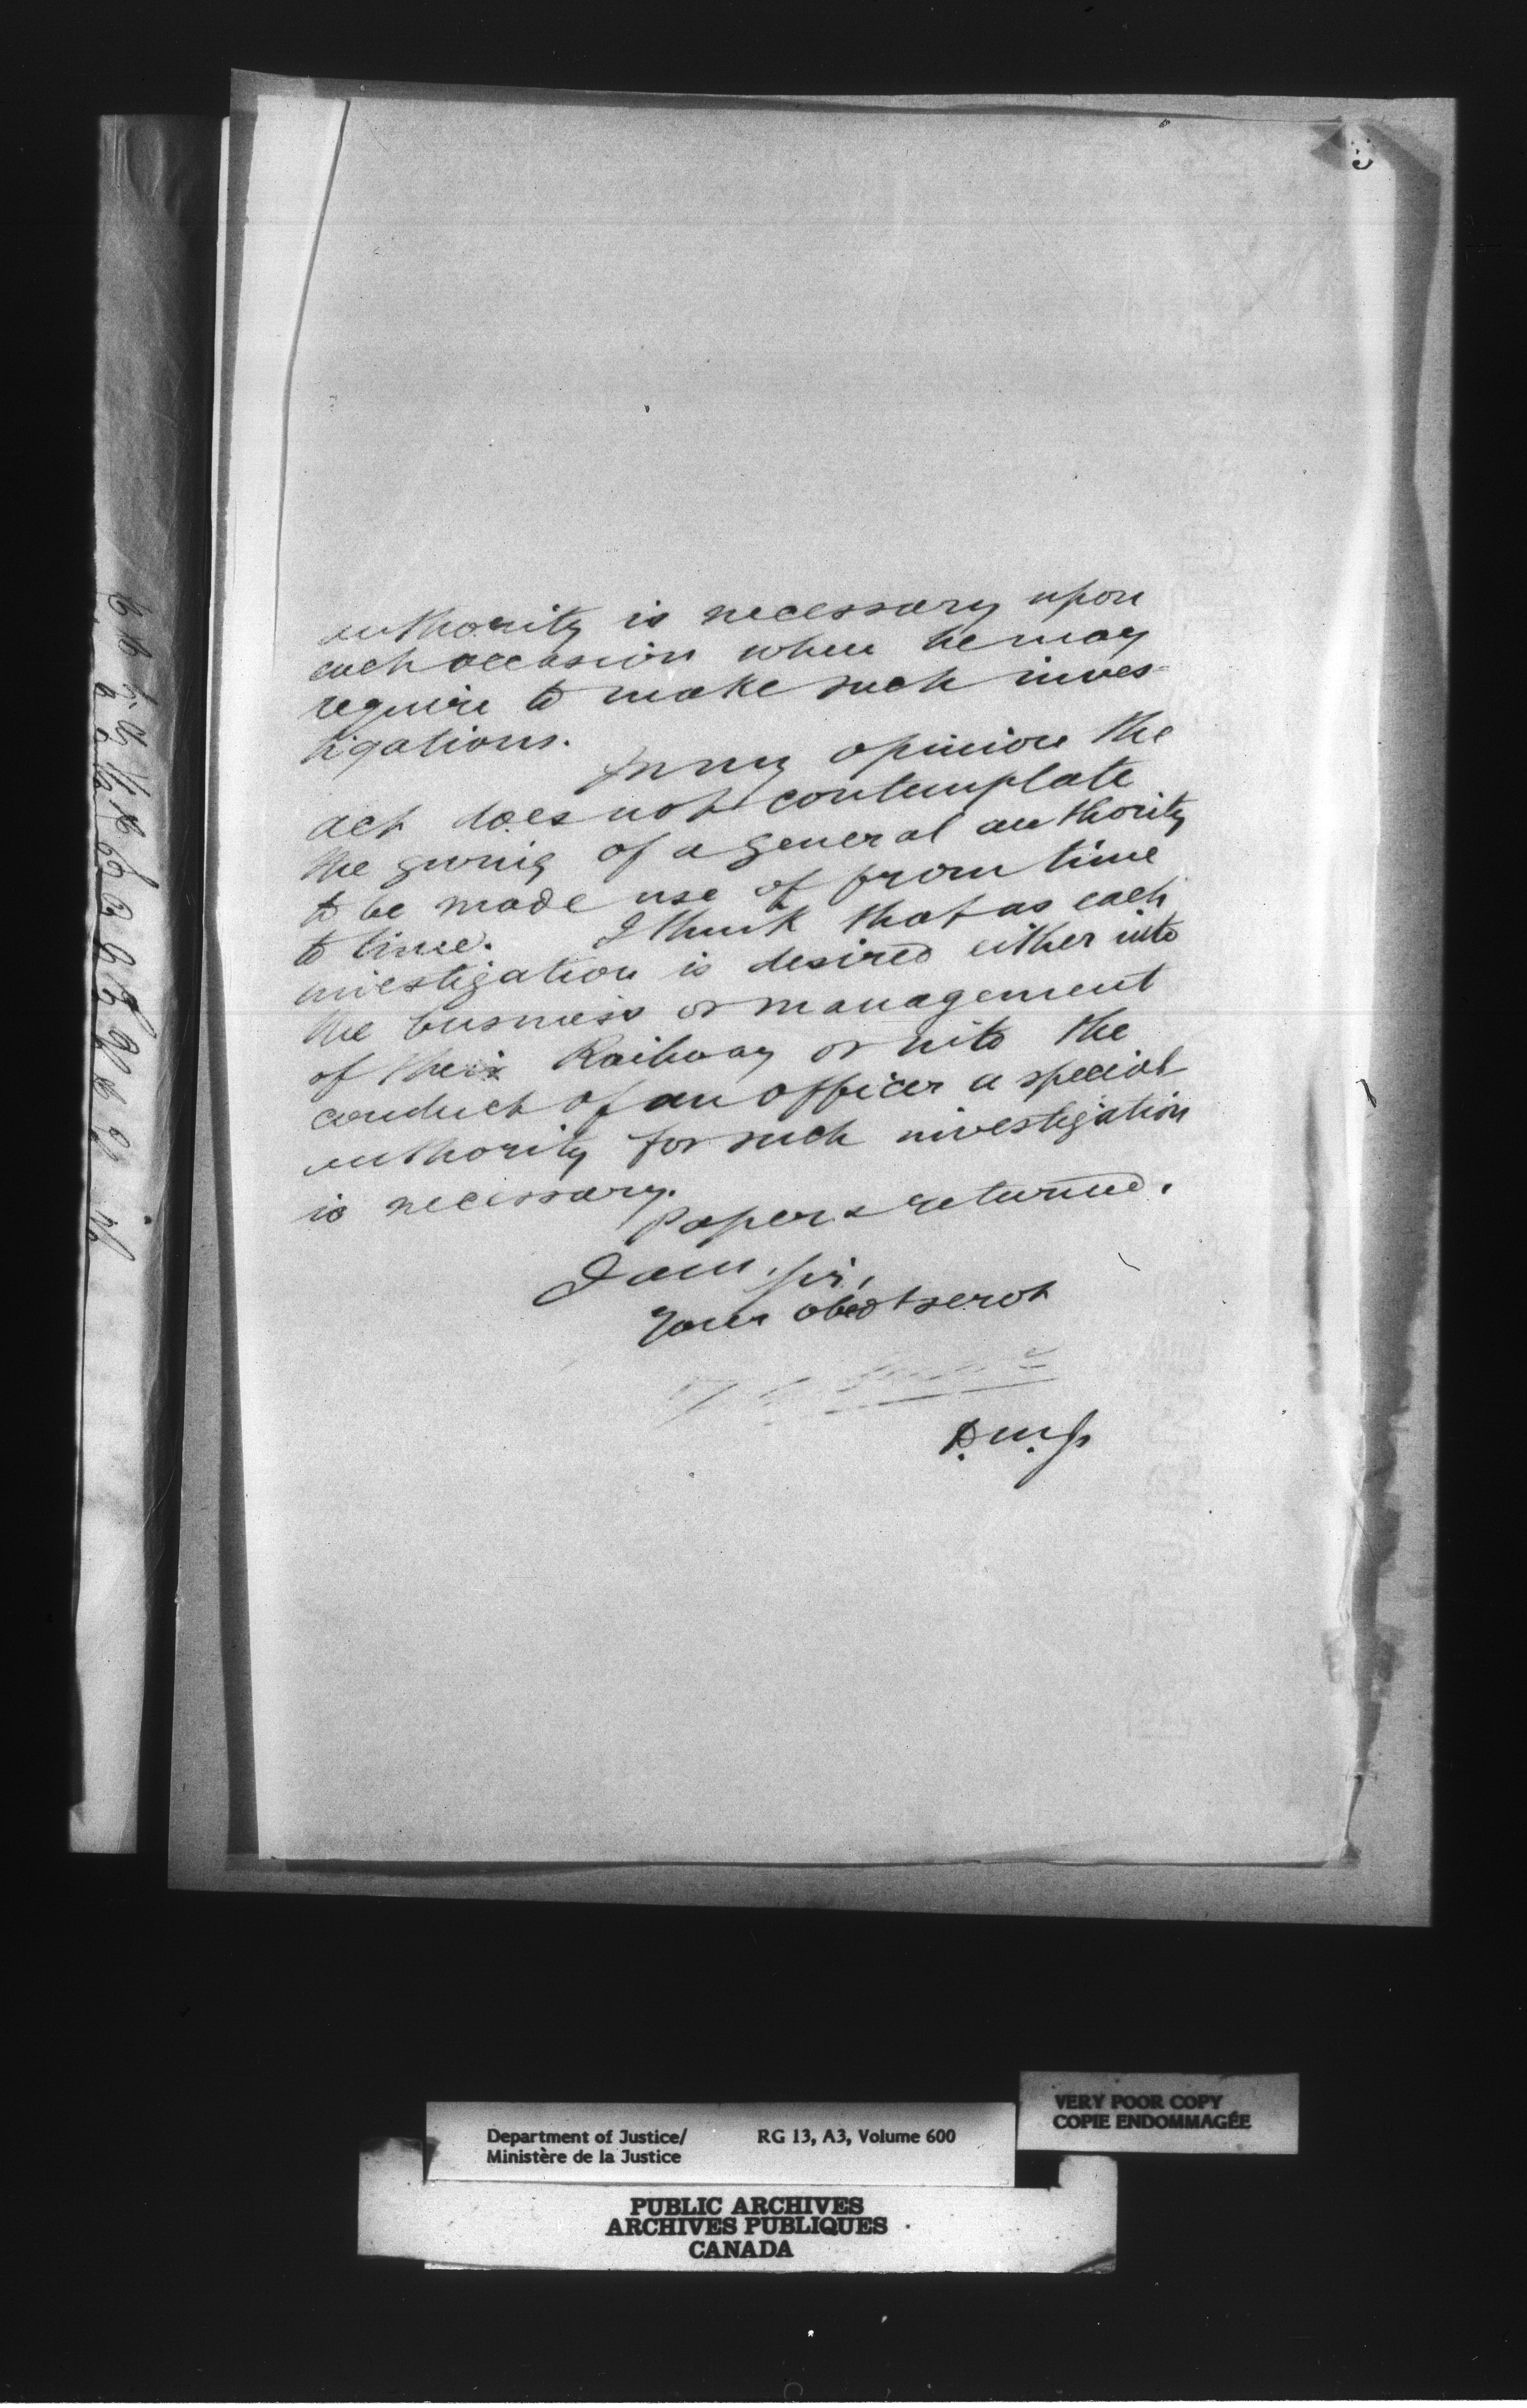 authority is necessary upon
each occasion when he may
require to make such inves-
tigations.
In my opinion the
act does not contemplate
the giving of a general authority
to be made use of from time
to time. I think that as each
investigation is desired either into
the business or management
of the Railway or into the
conduct of an officer a special
authority for such investigation
is necessary.
Papers returned.
I am, Sir,
Your obedt servt
D.M.J.
Department of Justice/
Ministère de la Justice
RG 13, A3, Volume 600
VERY POOR COPY
COPIE ENDOMMAGÉE
PUBLIC ARCHIVES
ARCHIVES PUBLIQUES
CANADA